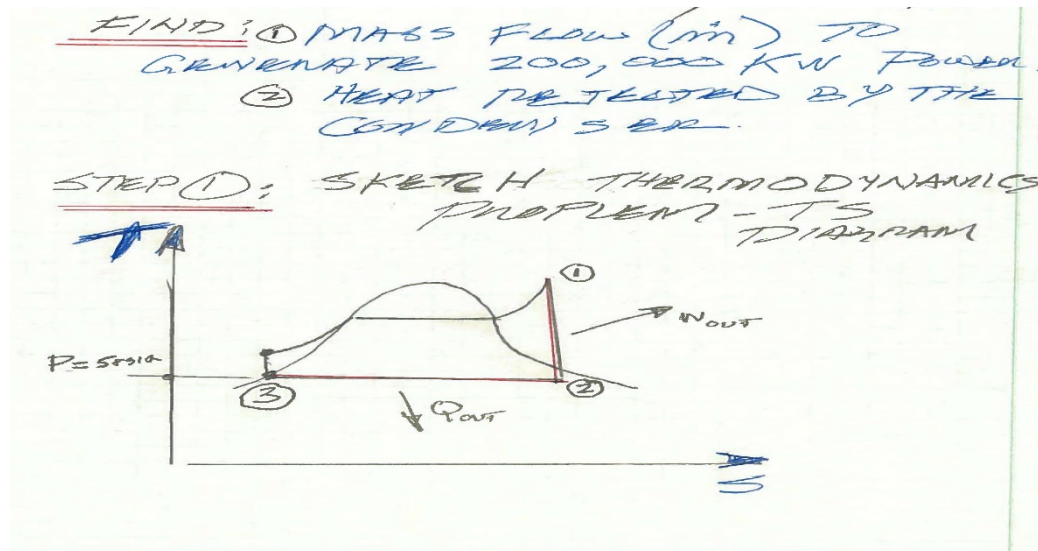 FIND: ① MASS FLOW (ṁ) TO
GENERATE 200,000 KW POWER.
② HEAT REJECTED BY THE
CONDENSER.
STEP ①: SKETCH THERMODYNAMICS
PROPLEM - TS
DIAGRAM
T
①
WOUT
P= 5PSIA
③
②
QOUT
S